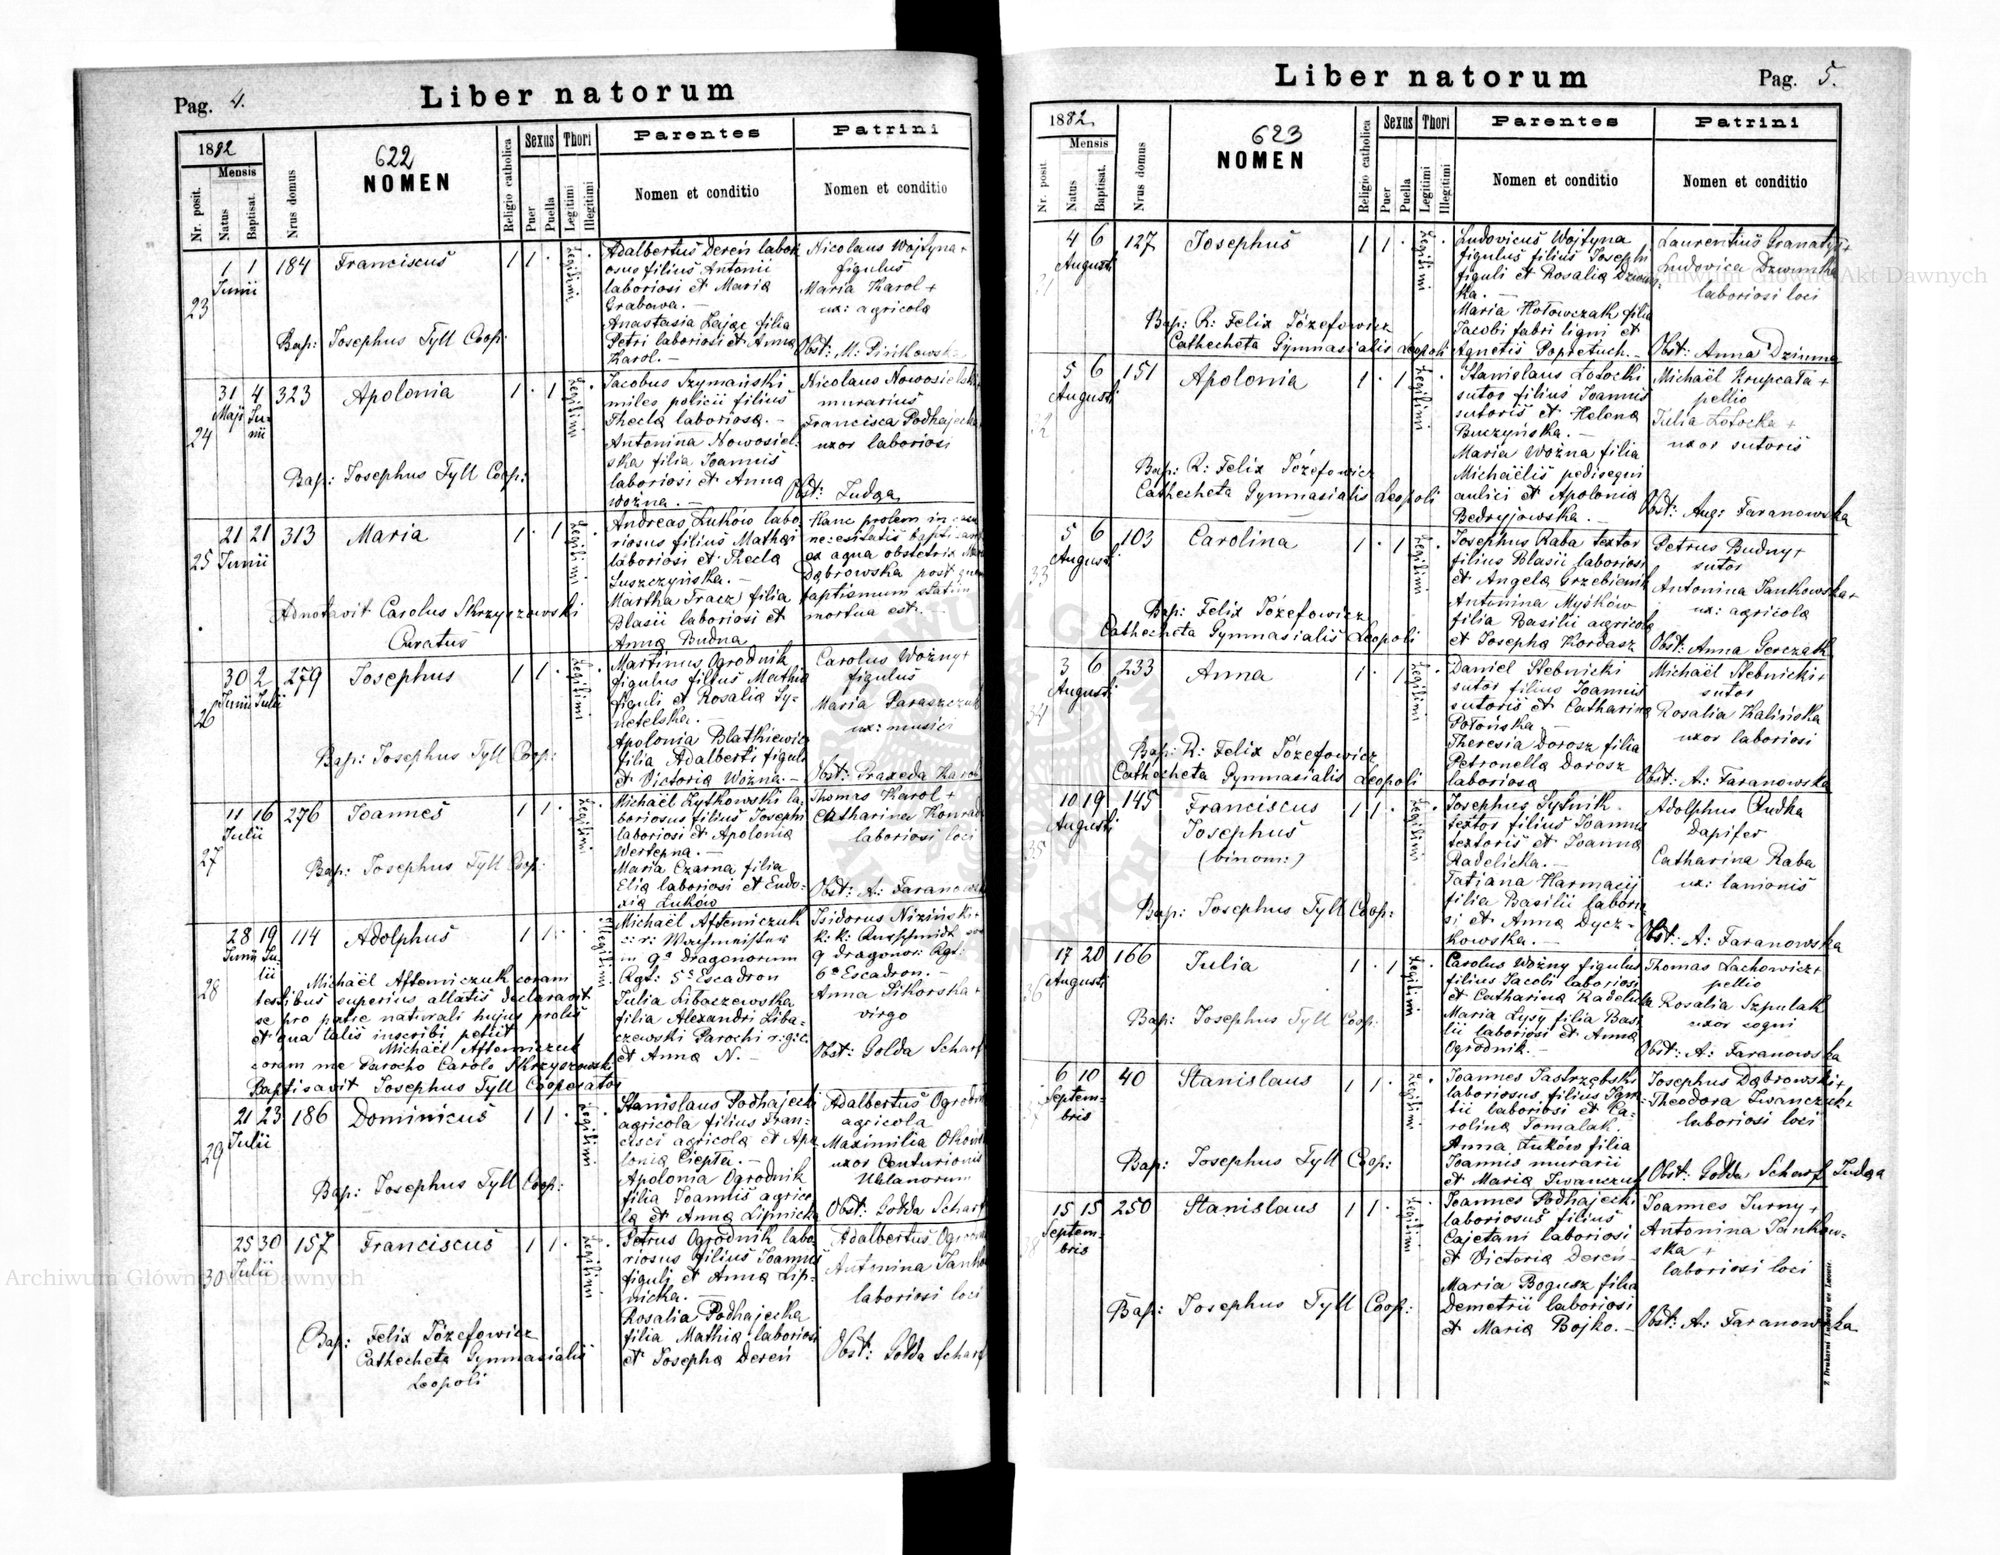 Pag. 4.
Liber natorum
1882
Mensis
Nr. posit.
Natus
Baptisat.
Nrus domus
622
NOMEN
Religio catholica
Sexus
Puer
Puella
Thori
Legitimi
Illegitimi
Parentes
Nomen et conditio
Patrini
Nomen et conditio
23
1 1
Junii
184
Franciscus
1 1 .
Legitimi
Bap: Josephus Tyll Coop:
Adalbertus Dereń labori
osus filius Antonii
laboriosi et Maria
Grabowa. —
Anastasia Zając filia
Petri laboriosi et Anna
Karol. —
Nicolaus Wojtyna +
figulus
Maria Karol +
ux: agricola
Obst: M:
24
31 4
Maji Ju-
nii
323
Apolonia
1 . 1
Legitimi
Bap: Josephus Tyll Coop:
Jacobus Szymański
miles policii filius
Thecla laboriosa. —
Antonina Nowosiel-
ska filia Joannis
laboriosi et Anna
Woźna. —
Nicolaus Nowosielski
murarius
Francisca Podhajecka
uxor laboriosi
Obst: Judaa
25
21 21
Junii
313
Maria
1 . 1
Legitimi
Adnotavit Carolus Skrzyszowski
Curatus
Andreas Luków labo
riosus filius Mathai
laboriosi et Thecla
Suszczyńska. —
Martha Tracz filia
Blasii laboriosi et
Anna Budna
Hanc prolem in casu
necessitatis bapti-
ex aqua obstetrix
Dąbrowska post
baptismum statim
mortua est. —
26
30 2
Junii Julii
279
Josephus
1 1 .
Legitimi
Bap: Josephus Tyll Coop:
Martinus Ogrodnik
figulus filius Mathia
figuli et Rosalia Sy-
netelska. —
Apolonia Blatkiewicz
filia Adalberti figuli
et Victoria Woźna. —
Carolus Woźny +
figulus
Maria Paraszczuk
ux: musici
Obst: Praxeda Karol
27
11 16
Julii
276
Joannes
1 1 .
Legitimi
Bap: Josephus Tyll Coop:
Michaël Żytkowski la-
boriosus filius Josephi
laboriosi et Apolonia
Wertepna. —
Maria Czarna filia
Elia laboriosi et Eudo-
xia Luków
Thomas Karol +
Catharina Konrad
laboriosi loci
Obst: A: Faranowska
28
28 19
Junii Ju-
lii
114
Adolphus
1 1 .
Illegitimi
Michaël Aftemiczuk coram
testibus superius allatis declaravit
se pro patre naturali hujus prolis
et qua talis inscribi petiit
Michaël Aftemiczuk
coram me Parocho Carolo Skrzyszowski
Baptisavit Josephus Tyll Cooperator
Michaël Aftemiczuk
Wachmeister
in 9° dragonorum
Rgt: 5° Escadron
Julia Libaczewska
filia Alexandri Liba-
czewski Parochi r: g: c:
et Anna N. —
Isidorus Niziński +
k: k: Kurschmidt
9 dragonor: Rgt:
6° Escadron. —
Anna Sikorska +
virgo
Obst: Golda Scharf
29
21 23
Julii
186
Dominicus
1 1 .
Legitimi
Bap: Josephus Tyll Coop:
Stanislaus Podhajecki
agricola filius Fran-
cisci agricola et Apo
lonia Ciepła. —
Apolonia Ogrodnik
filia Joannis agrico
la et Anna Lipnicka
Adalbertus Ogrodnik
agricola
Maximilia
uxor Centurionis
Uhlanorum
Obst: Golda Scharf
30
25 30
Julii
157
Franciscus
1 1 .
Legitimi
Bap: Felix Józefowicz
Cathecheta Gymnasialis
Leopoli
Petrus Ogrodnik labo-
riosus filius Joannis
figuli et Anna Lip-
nicka. —
Rosalia Podhajecka
filia Mathia laboriosi
et Josepha Dereń
Adalbertus Ogrodnik
Antonina
laboriosi loci
Obst: Golda Scharf
Liber natorum
Pag. 5.
1882
Mensis
Nr. posit.
Natus
Baptisat.
Nrus domus
623
NOMEN
Religio catholica
Sexus
Puer
Puella
Thori
Legitimi
Illegitimi
Parentes
Nomen et conditio
Patrini
Nomen et conditio
31
4 6
Augusti
127
Josephus
1 1 .
Legitimi
Bap: R: Felix Józefowicz
Cathecheta Gymnasialis Leopoli
Ludovicus Wojtyna
figulus filius Josephi
figuli et Rosalia
ka. —
Maria Hołowczak filia
Jacobi fabri ligni et
Agnetis Popretuch. —
Laurentius Granatyr +
Ludovica
laboriosi loci
Obst: Anna Dziuma
32
5 6
Augusti
151
Apolonia
1 . 1
Legitimi
Bap: R: Felix Józefowicz
Cathecheta Gymnasialis Leopoli
Stanislaus Łotocki
sutor filius Joannis
sutoris et Helena
Buczyńska. —
Maria Woźna filia
Michaëlis pedisequi
aulici et Apolonia
Bedryjowska. —
Michaël Krupcała +
pellio
Julia Łotocka +
uxor sutoris
Obst: Aug: Faranowska
33
5 6
Augusti
103
Carolina
1 . 1
Legitimi
Bap: Felix Józefowicz
Cathecheta Gymnasialis Leopoli
Josephus Raba textor
filius Blasii laboriosi
et Angela Grzebieniak
Antonina Myśków
filia Basilii agricola
et Josepha Kordasz
Petrus Budny +
sutor
Antonina Jankowska +
ux: agricola
Obst: Anna Gerczak
34
3 6
Augusti
233
Anna
1 . 1
Legitimi
Bap: R: Felix Józefowicz
Cathecheta Gymnasialis Leopoli
Daniel Stebnicki
sutor filius Joannis
sutoris et Catharina
Połońska —
Theresia Dorosz filia
Petronella Dorosz
laboriosa
Michaël Stebnicki +
sutor
Rosalia Kalińska
uxor laboriosi
Obst: A: Faranowska
35
10 19
Augusti
145
Franciscus
Josephus
(binom:)
1 1 .
Legitimi
Bap: Josephus Tyll Coop:
Josephus Sysnik
textor filius Joannis
textoris et Joanna
Radelicka. —
Tatiana Harmacij
filia Basilii laborio
si et Anna Dycz-
kowska. —
Adolphus Rudka
dapifer
Catharina Raba
ux: lanionis
Obst: A: Faranowska
36
17 20
Augusti
166
Julia
1 . 1
Legitimi
Bap: Josephus Tyll Coop:
Carolus Woźny figulus
filius Jacobi laboriosi
et Catharina Radelicka
Maria Łysy filia Basi
lii laboriosi et Anna
Ogrodnik. —
Thomas Lachowicz +
pellio
Rosalia Szpulak
uxor cogni
Obst: A: Faranowska
6 10
Septem-
bris
40
Stanislaus
1 1 .
Legitimi
Bap: Josephus Tyll Coop:
Joannes Jastrzębski
laboriosus filius Igna-
tii laboriosi et Ca-
rolina Tomalak.
Anna Luków filia
Joannis murarii
et Maria Iwanczuk
Josephus Dąbrowski +
Theodora Iwanczuk +
laboriosi loci
Obst: Golda Scharf Judaa
38
15 15
Septem-
bris
250
Stanislaus
1 1 .
Legitimi
Bap: Josephus Tyll Coop:
Joannes Podhajecki
laboriosus filius
Cajetani laboriosi
et Victoria Dereń —
Maria Bogusz filia
Demetrii laboriosi
et Maria Bojko. —
Joannes Jurny +
Antonina Jankow-
ska +
laboriosi loci
Obst: A: Faranowska
Z Drukarni Ludowej we Lwowie.
Archiwum Główne Akt Dawnych
Archiwum Główne Akt Dawnych